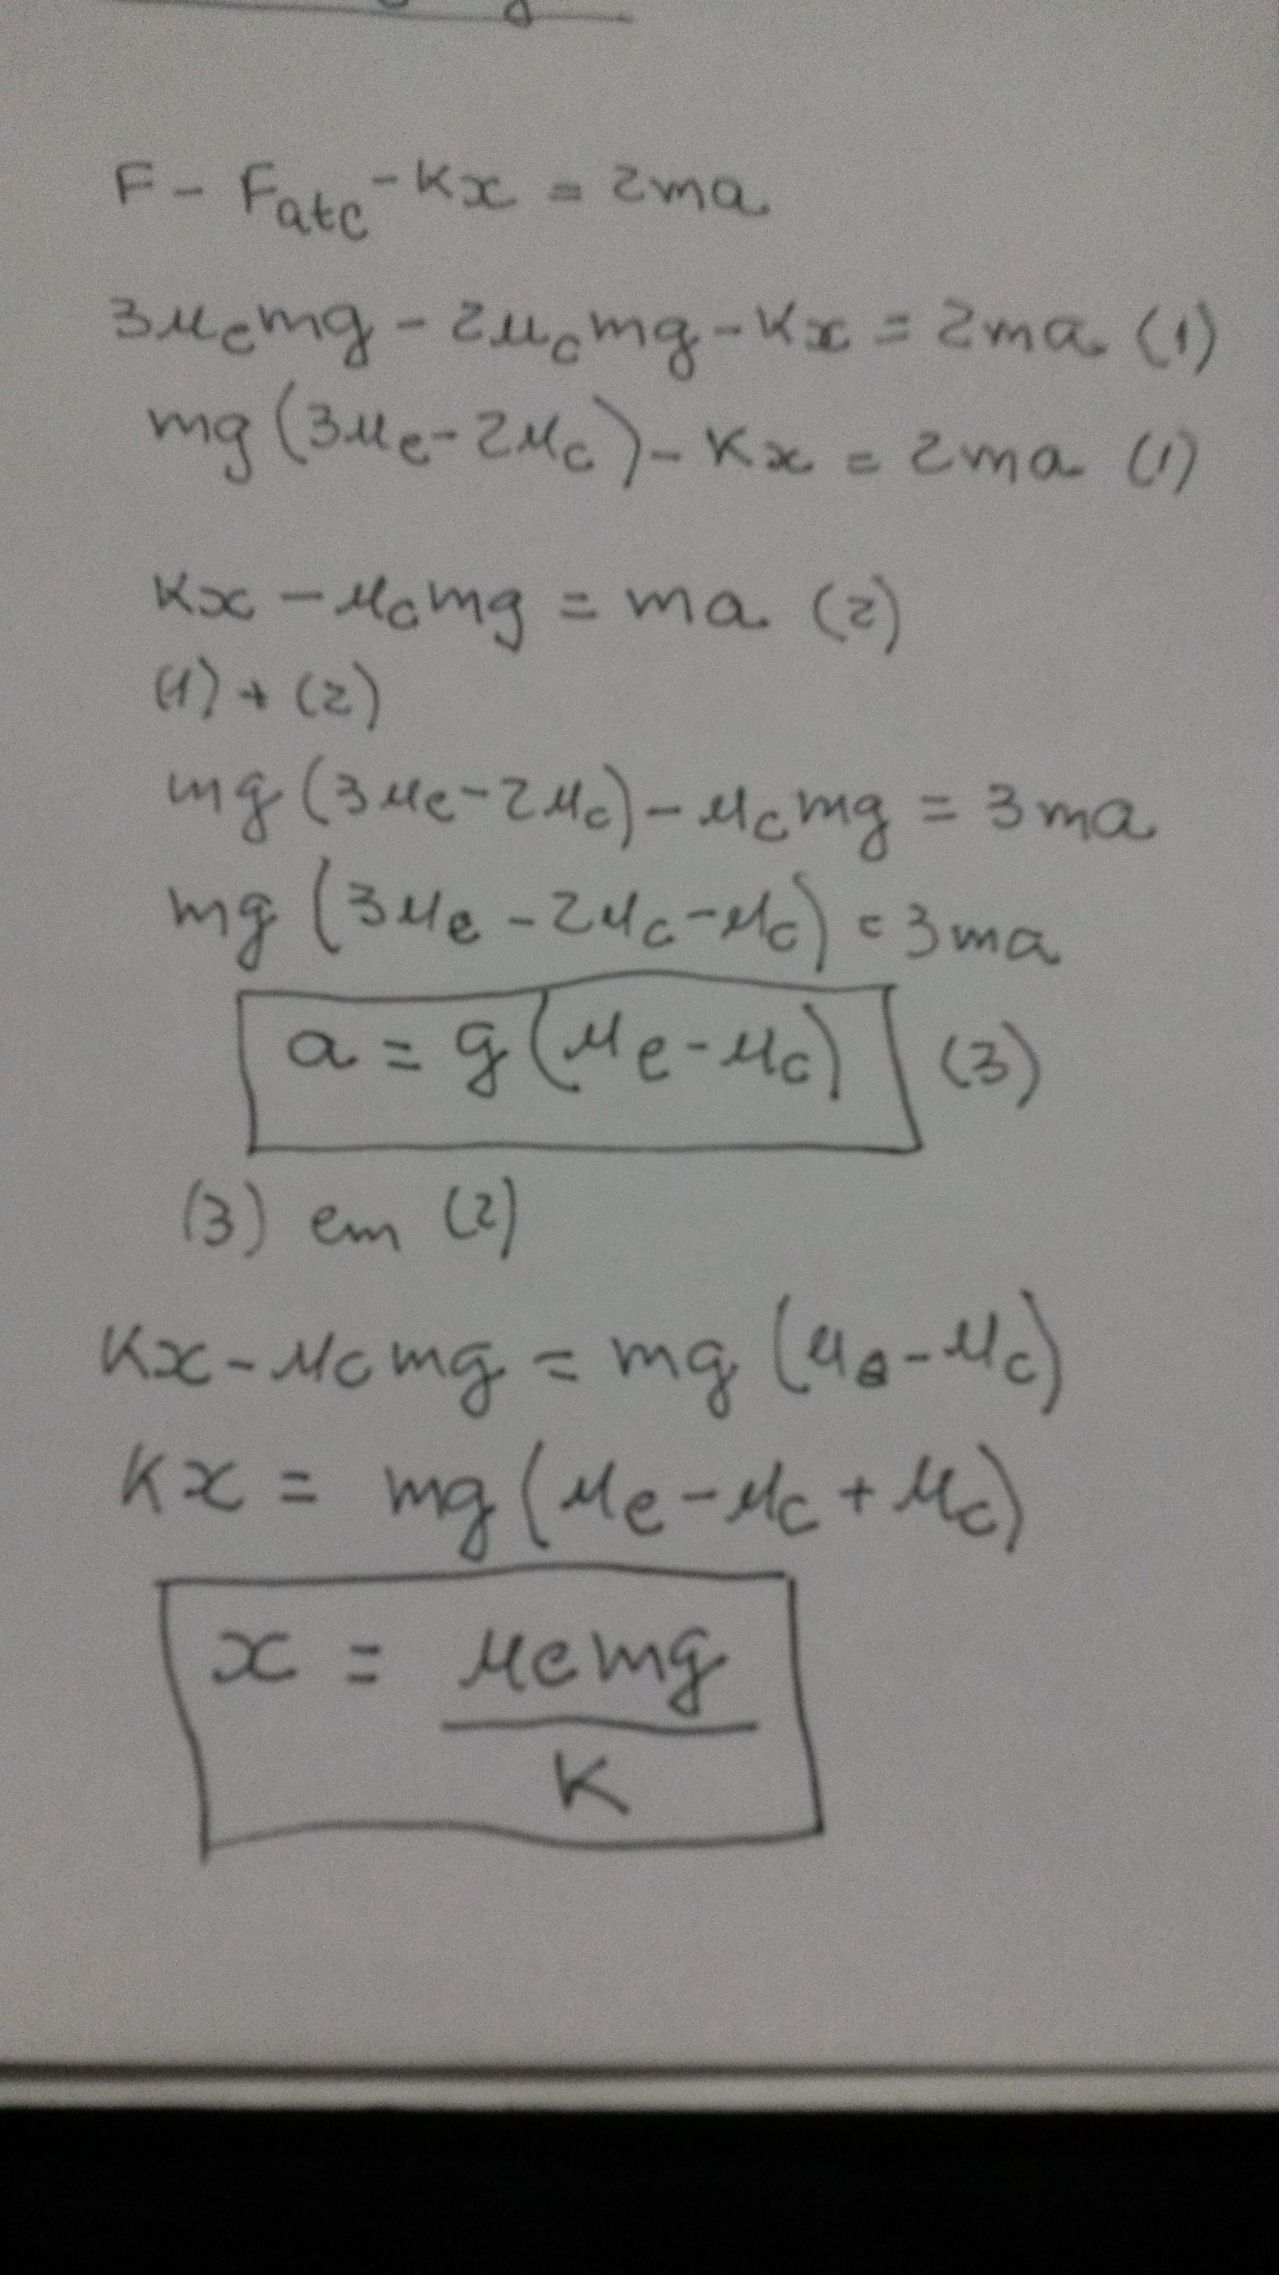 F - Fatc - Kx = 2ma
3μemg - 2μcmg - Kx = 2ma (1)
mg (3μe - 2μc) - Kx = 2ma (1)
Kx - μcmg = ma (2)
(1) + (2)
mg (3μe - 2μc) - μcmg = 3ma
mg (3μe - 2μc - μc) = 3ma
a = g (μe - μc) (3)
(3) em (2)
Kx - μcmg = mg (μe - μc)
Kx = mg (μe - μc + μc)
x = μemg
K